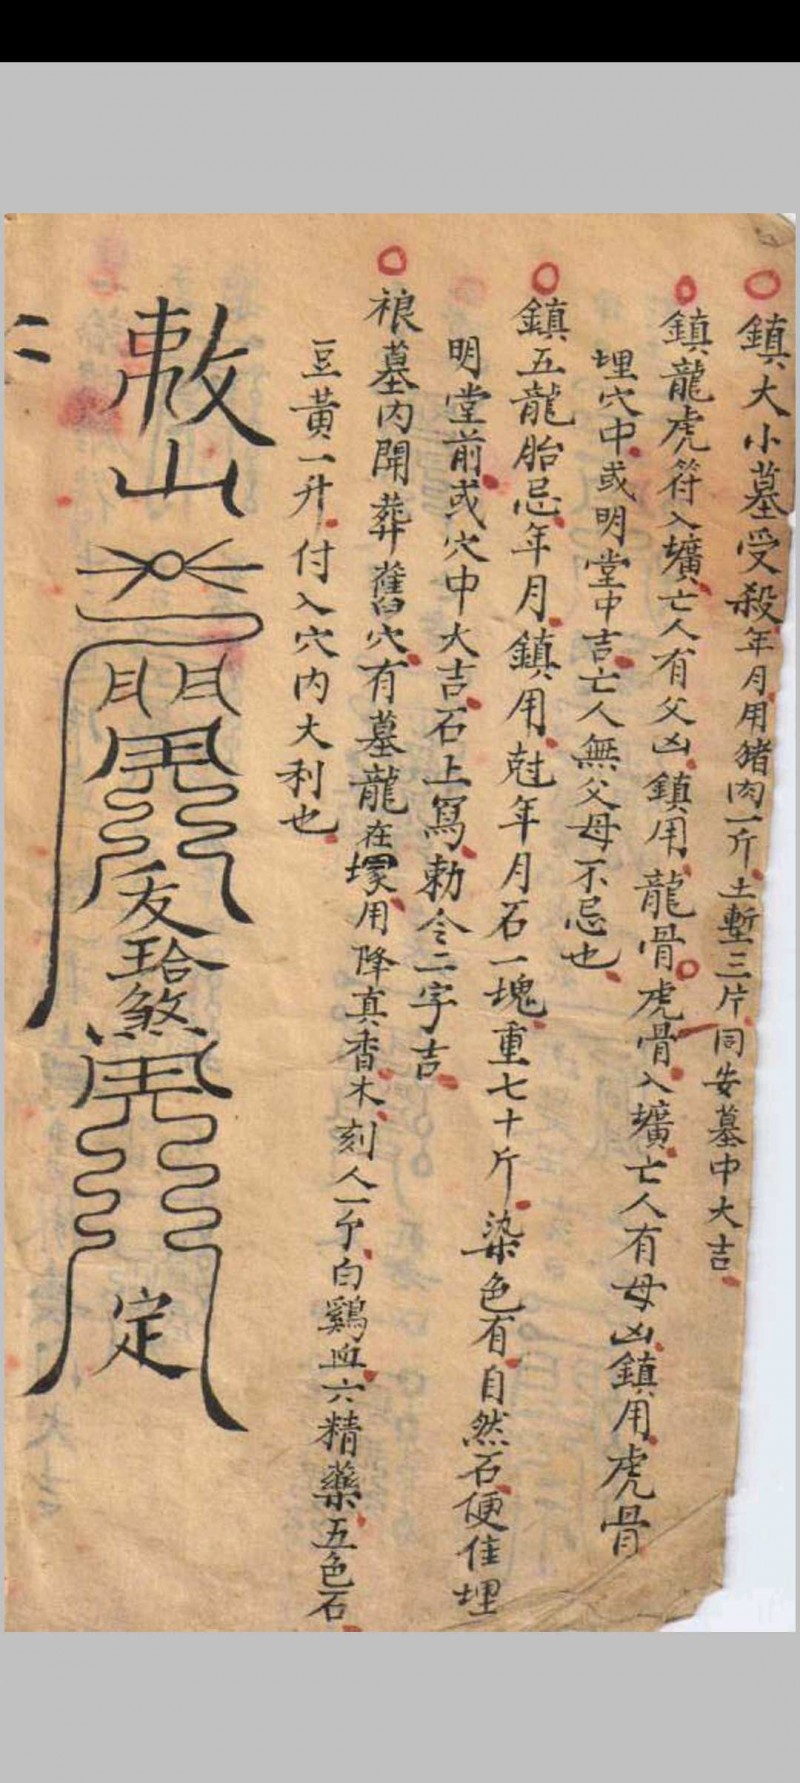 鎮大小墓受殺年月用猪肉一斤土塹三片同安墓中大吉
鎮龍虎符入壙亡人有父凶鎮用龍骨虎骨入壙亡人有母凶鎮用虎骨
埋穴中或明堂中吉亡人無父母不忌也
鎮五龍胎忌年月鎮用尅年月石一塊重七十斤染色有自然石便佳埋
明堂前或穴中大吉石上寫勅令二字吉
墓内開葬舊穴有墓龍在塚用降真香木刻人一个白鷄血六精藥五色石
豆黃一升付入穴内大利也
敕山
煞
定